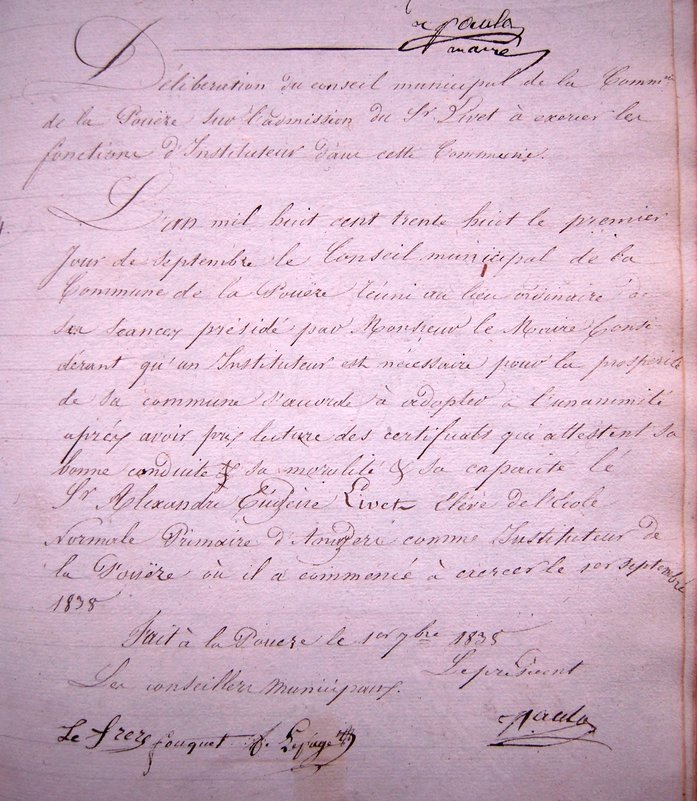 maire
Délibération du conseil municipal de la Comm.ne
de la Pouëze sur l'admission du Sr Livet à exercer les
fonctions d'Instituteur dans cette Commune.
L'an mil huit cent trente huit le premier
Jour de Septembre le Conseil municipal de la
Commune de la Pouëze Réuni au lieu ordinaire de
sa seances présidé par Monsieur le Maire Consi-
dérant qu'un Instituteur est nécessaire pour la prosperité
de sa commune s'accorde à adopter à l'unanimité
après avoir pris lecture des certificats qui attestent sa
bonne conduite & sa moralité & sa capacite le
Sr Alexandre Eugène Livet Elève de l'école
Normale Primaire d'Angers comme Instituteur de
la Pouëze où il a commencé à exercer le 1er septembre
1838
Fait à la Poueze le 1er 7bre 1838
Le président
Les conseillers municipaux.
Le frere fouquet f. Lepage